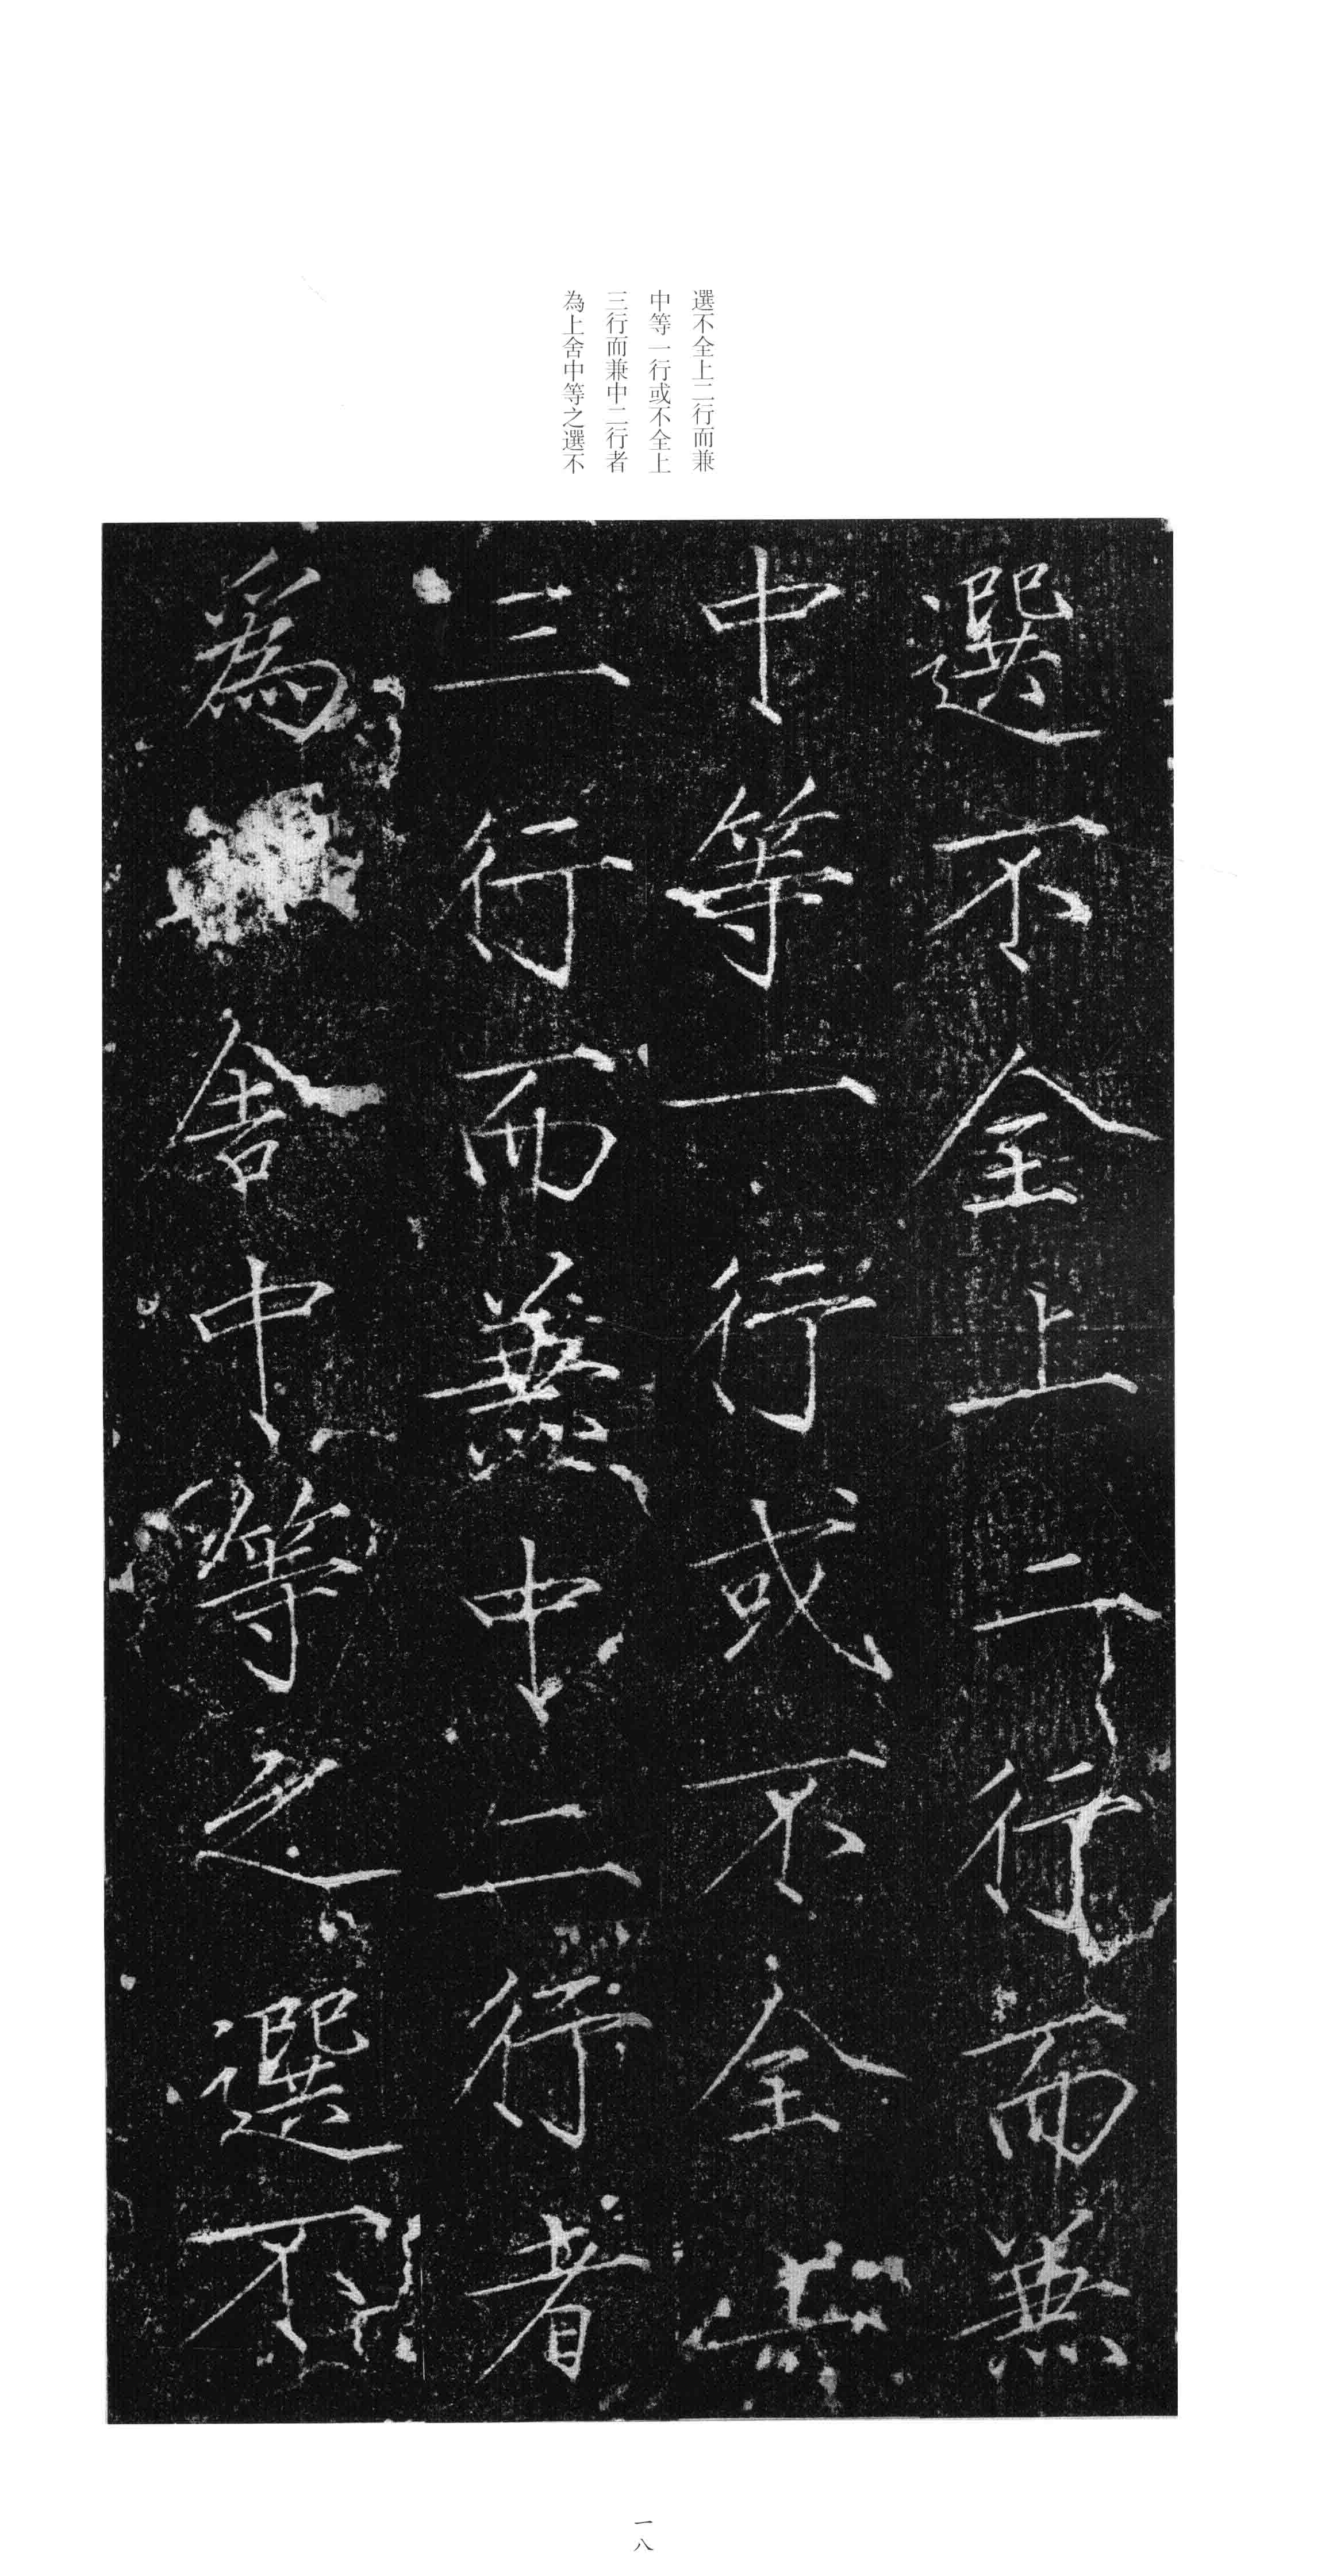 選不全上二行而兼
中等一行或不全上
三行而兼中二行者
為上舍中等之選不
選不全上二行而兼
中等一行或不全上
三行而兼中二行者
為舍中等之選不
一八